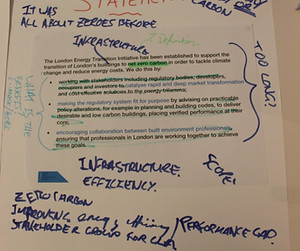 IT WAS
ALL ABOUT ZEROES BEFORE
STATEMENT
CARBON
INFRASTRUCTURE
The London Energy Transition Initiative has been established to support the
transition of London's buildings to net zero carbon in order to tackle climate
change and reduce energy costs. We do this by
working with stakeholders including regulatory bodies, developers,
occupiers and investors to catalyse rapid and deep market transformation
and cost effective solutions to the energy trilemma;
making the regulatory system fit for purpose by advising on practicable
policy alterations, for example in planning and building codes, to deliver
desirable and low carbon buildings, placing verified performance at their
core;
encouraging collaboration between built environment professionals,
ensuring that professionals in London are working together to achieve
these goals.
TOO LONG?
WHAT IS THE
INFRASTRUCTURE.
EFFICIENCY.
SCOPE?
ZERO CARBON
IMPROVING
STAKEHOLDER GROUP FOR
PERFORMANCE GAP.